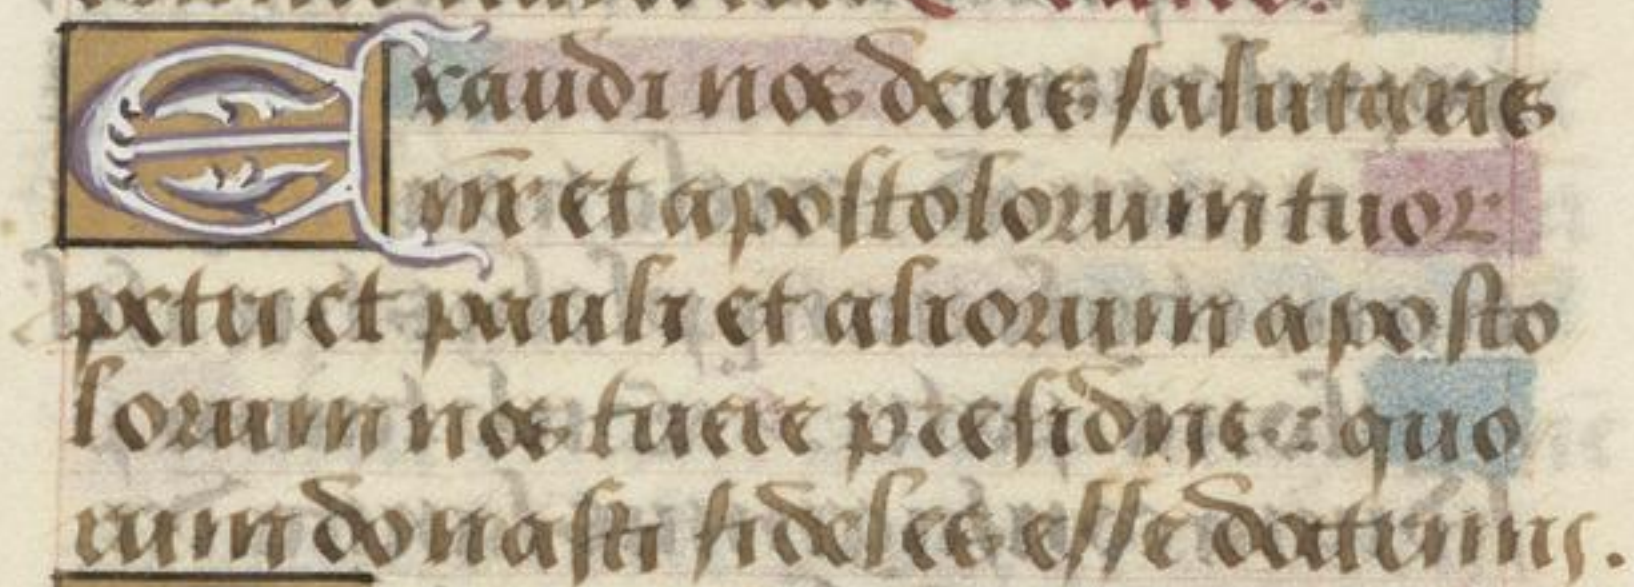 Exaudi nos deus salutaris
nr̄ et apostolorum tuor
petri et pauli et aliorum aposto
lorum nos tuere presidiis: quo
rum donasti fideles esse doctrinis.